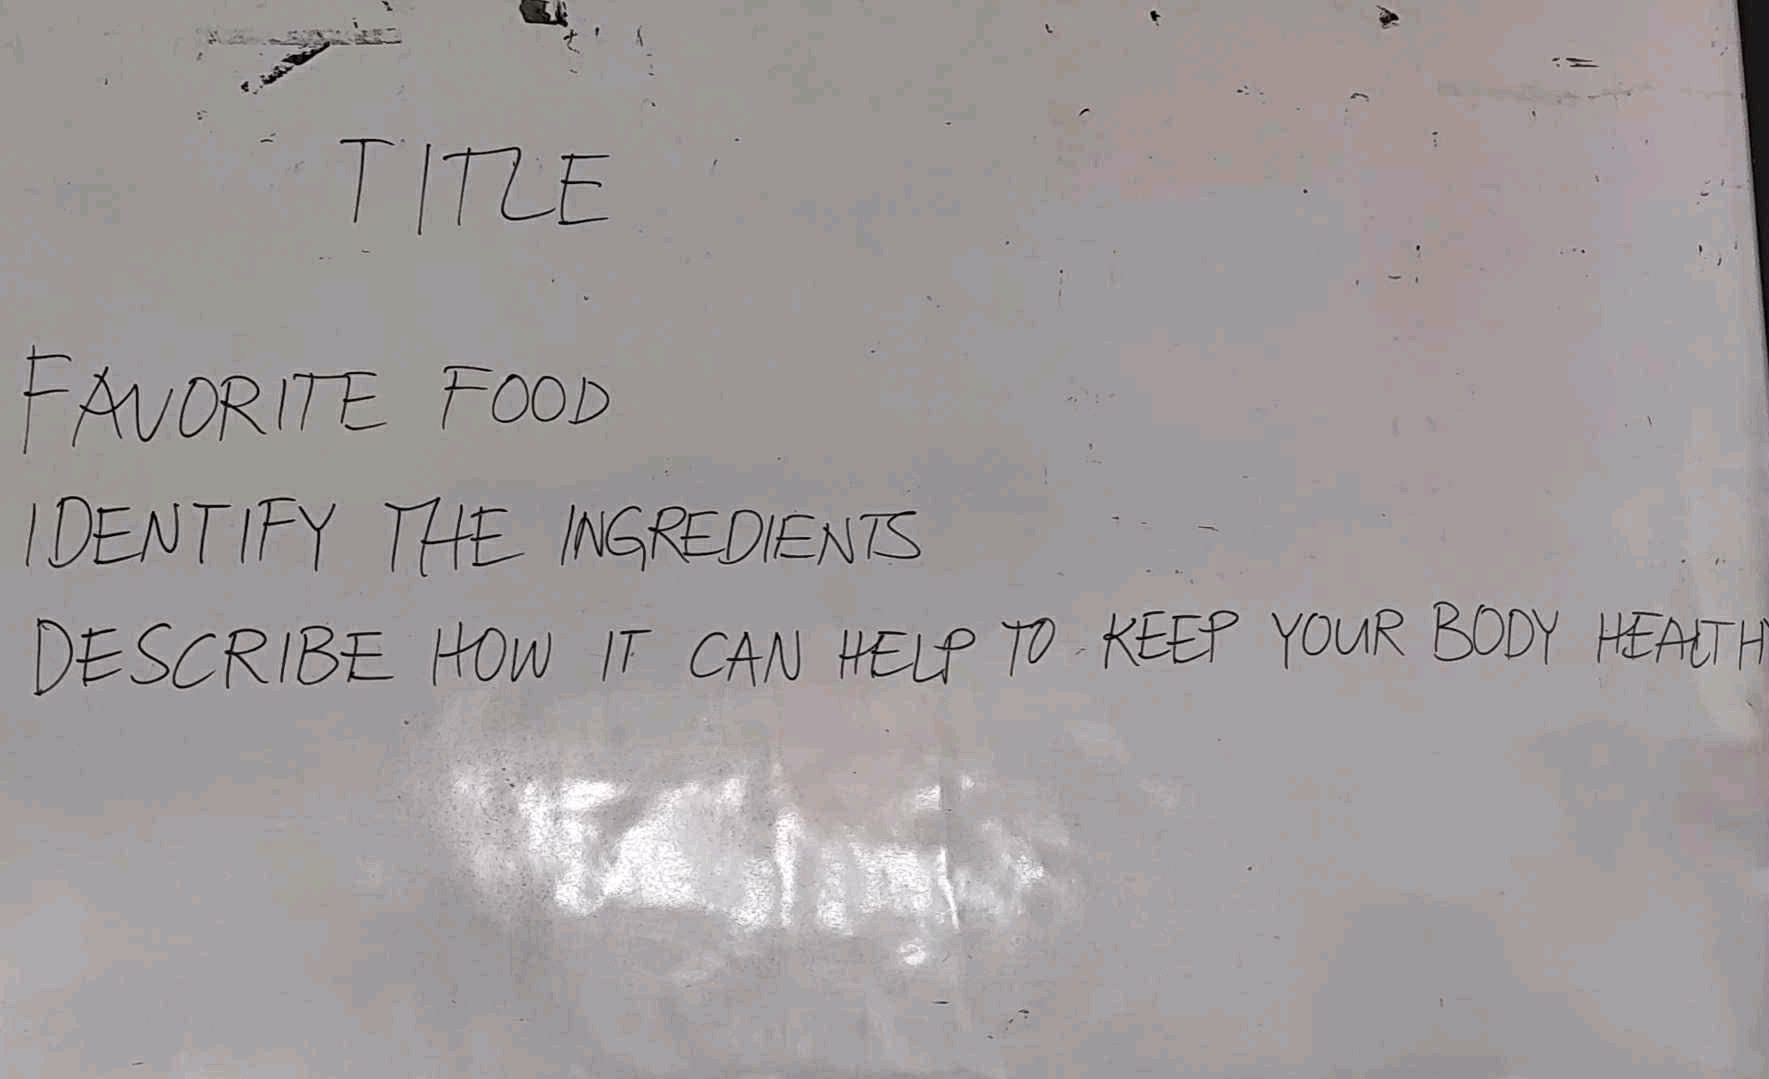 TITLE
FAVORITE FOOD
IDENTIFY THE INGREDIENTS
DESCRIBE HOW IT CAN HELP TO KEEP YOUR BODY HEALTH